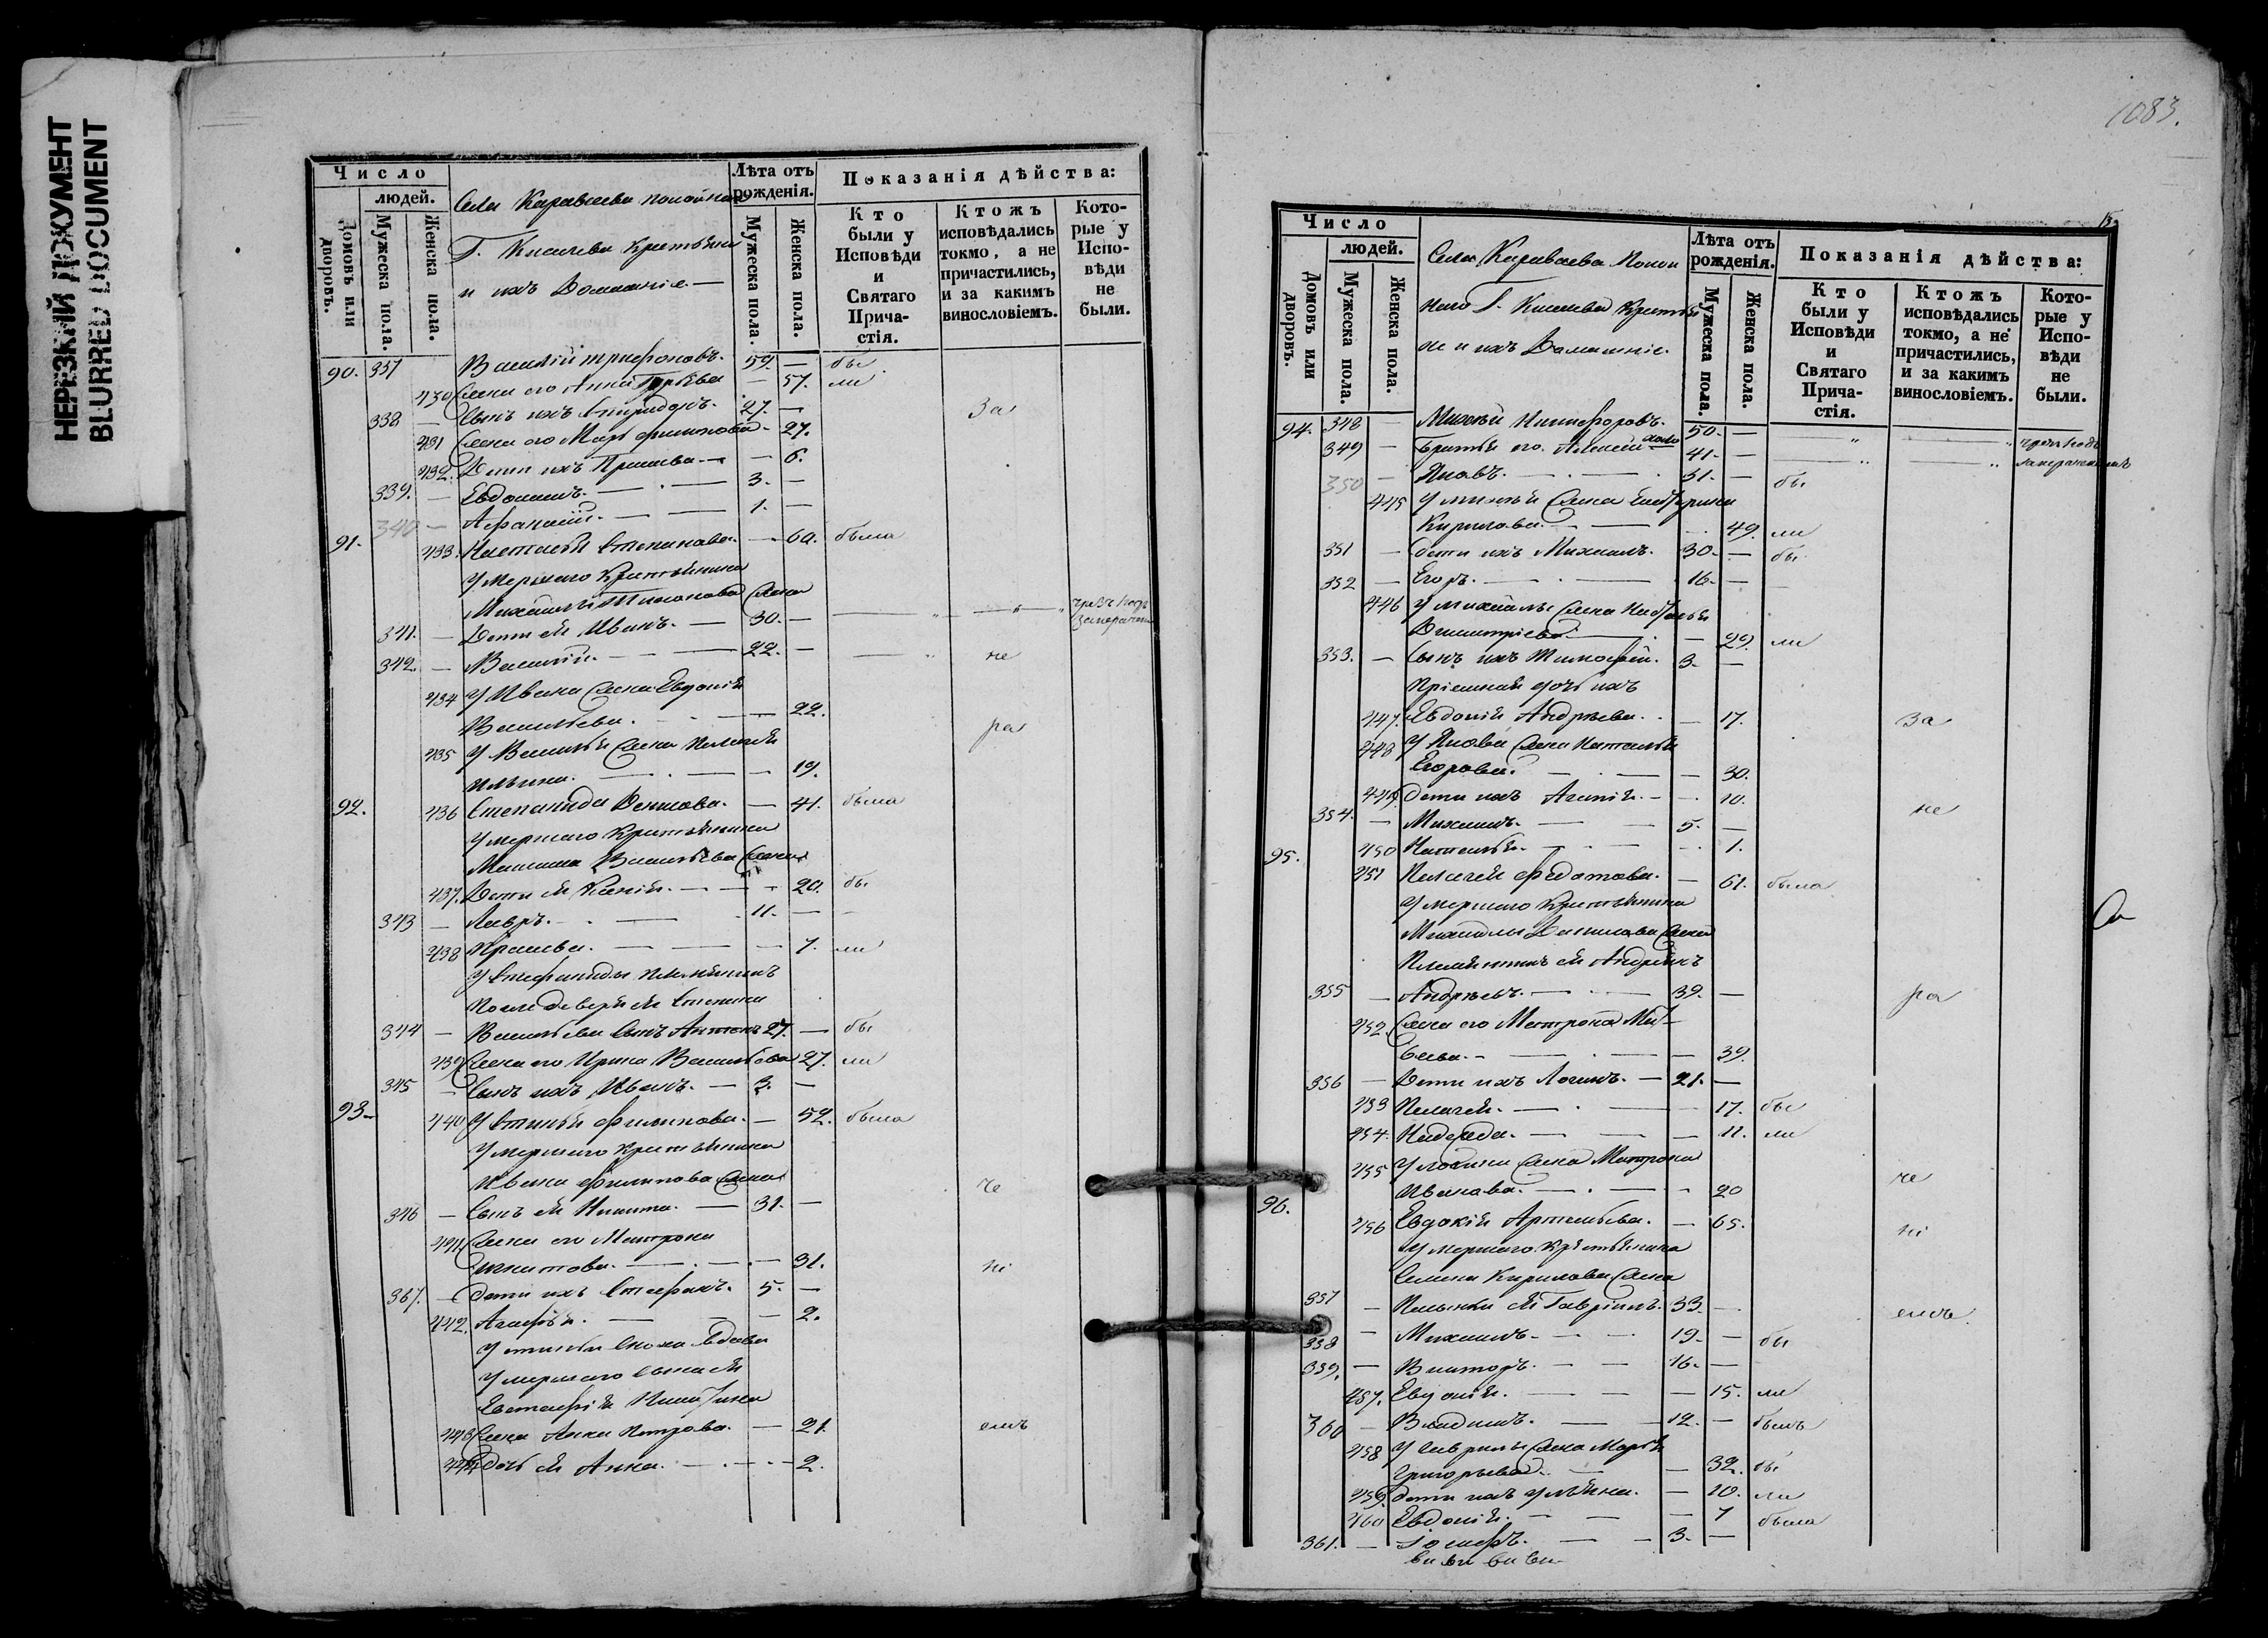 НЕРЕЗКИЙ ДОКУМЕНТ
BLURRED DOCUMENT
Число
людей.
Домовъ или дворовъ.
Мужеска пола.
Женска пола.
Села Караваева покойнаго
Г. Киселева крестьяне
и ихъ Домашніе.
Лѣта отъ рожденія.
Мужеска пола.
Женска пола.
Показанія дѣйства:
Кто были у Исповѣди и Святаго Прича-стія.
Ктожъ исповѣдались токмо, а не причастились, и за какимъ винословіемъ.
Кото-рые у Испо-вѣди не были.
90. 337 Василій Трифоновъ. 59. — бы
430 Жена его Анна Гурьева — 57. ли
338 — Сынъ ихъ Спиридонъ. 27. — За
431 Жена его Марья Филипова — 27.
432. Дети ихъ Прасковья — 6.
339. — Евдокимъ. 3. —
340 — Афанасій. 1. —
91. 433. Настасья Степанова. — 60. была
Умершаго Крестьянина
Михайлы Тихонова Жена
341. — Дети ея Иванъ. 30. —
342. — Василій. 22. — не
434 У Ивана Жена Евдокія
Васильева. 22.
ра
435 У Василья Жена Пелагея
Ильина. — 19.
92. 436 Степанида Денисова. — 41. была
Умершаго Крестьянина
Максима Васильева Жена
437. Дети ея Ксенія. — 20. бы
343 — Лавръ. 11. —
438 Прасковья. — 7. ли
У Степаниды племянникъ
После деверя ея Степана
344 — Васильева Сынъ Антонъ 27. — бы
439 Жена его Ирина Васильева 27. ли
345 — Сынъ ихъ Иванъ. 3. —
93. 440 Устинья Филипова. — 52. была
Умершаго Крестьянина
Ивана Филипова Жена
че
346 — Сынъ ея Никита. 31. —
441 Жена его Матрона
31.
ні
367. — Дети ихъ Стефанъ. 5. —
442. Агафья. — 2.
У Устиньи Сноха вдова
Умершаго Сына ея
443 Жена Анна Петрова. — 21. емъ
444 Дочь ея Анна. — 2.
1083.
Число
людей.
Домовъ или дворовъ.
Мужеска пола.
Женска пола.
Села Караваева Покой
наго Г. Киселева Крестья
не и ихъ Домашніе.
Лѣта отъ рожденія.
Мужеска пола.
Женска пола.
Показанія дѣйства:
Кто были у Исповѣди и Святаго Прича-стія.
Ктожъ исповѣдались токмо, а не причастились, и за какимъ винословіемъ.
Кото-рые у Испо-вѣди не были.
94. 348 — Никифоровъ. 50. —
349 — Братья его Алексей 41. —
350 — Яковъ. 31. — бы
445 Жена Екатерина
Кирилова. 49. ли
351 — Дети ихъ Михаилъ. 30. — бы
352 — Егоръ. 16. —
446 У Михайлы Жена Настасья
Димитріева. — 29. ли
353. — Сынъ ихъ Тимофей. 3. —
Пріемная дочь ихъ
447. Евдокія Андреева. — 17. За
448 У Якова Жена Наталья
Егорова. — 30.
449. Дети ихъ Агапія. — 10. не
354. — Михаилъ. 5. —
450 Наталья. — 1.
95. 451 Пелагея Федотова. — 61. была
Умершаго Крестьянина
Михайлы Данилова Жена
Племянникъ ея Андреянъ
355 — Андреевъ. 39. — ра
452. Жена его Матрона Мат-
веева. — 39.
356 — Дети ихъ Логинъ. 21. —
453 Пелагея. — 17. бы
454. Надежда. — 11. ли
455 У Логина Жена Матрона
Иванова. — 20 че
96. 456 Евдокія Артемьева. — 65. ні
Умершаго Крестьянина
Семена Кирилова Жена
357 — Пасынки ея Гавріилъ. 33. — емъ.
358 — Михаилъ. 19. — бы
359. — Викторъ. 16. —
457. Евдокія. — 15. ли
360 — Владимъ. 12. — былъ
458 У Гаврилы Жена Марья
Григорьева. — 32. бы
459. Дети ихъ Ульяна. — 10. ли
460 Евдокія. — 7 была
361. — Іосифъ. 3. —